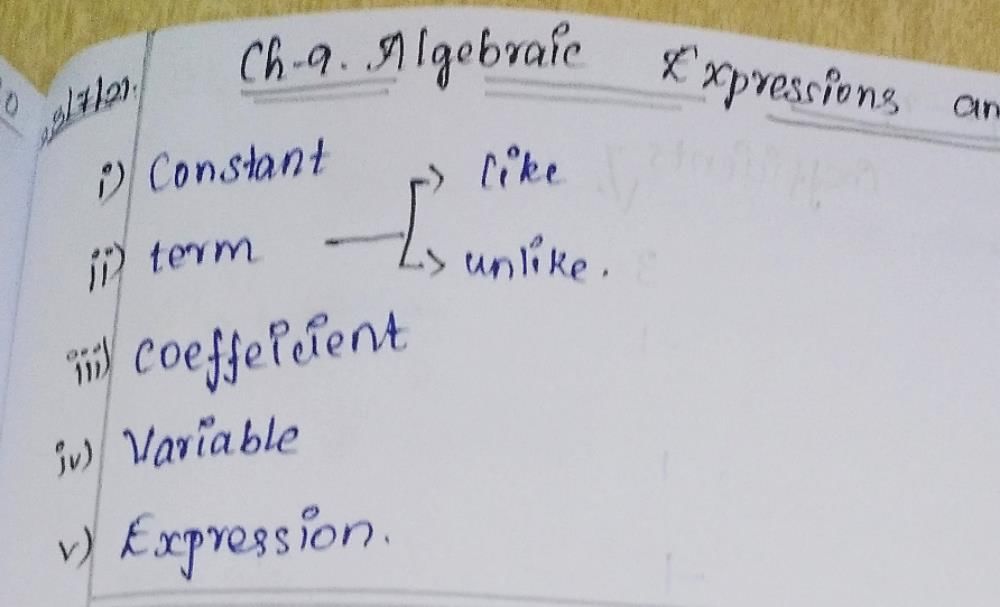 Ch-9. Algebraic Expressions an
i) Constant
like
ii) term
unlike.
iii) coeffeicient
iv) Variable
v) Expression.